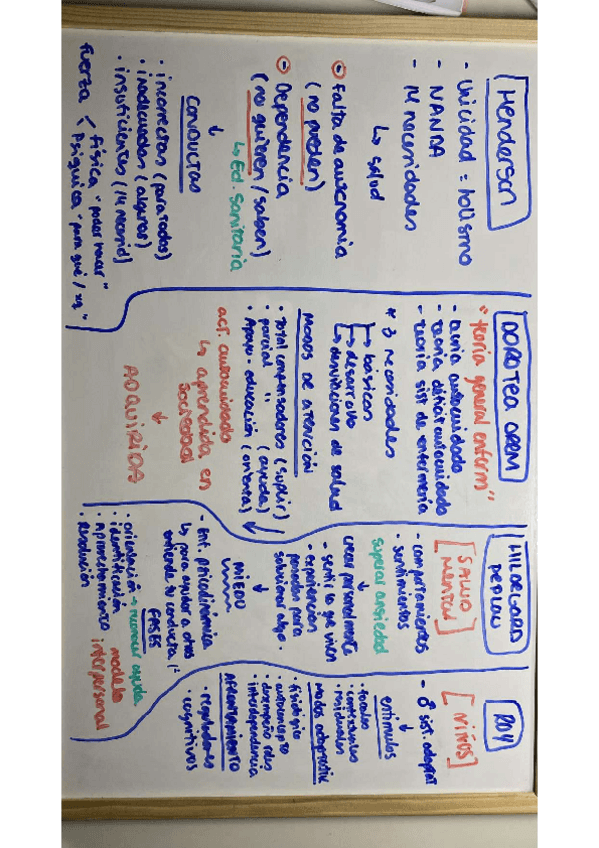 Henderson
- Unicidad = holismo
- NANDA
- 14 necesidades
↳ salud
⊖ Falta de autonomia
(no pueden)
⊖ Dependencia
(no quieren / saben)
↳ Ed. Sanitaria
↓
CONDUCTAS
· incorrectas (para todos)
· inadecuadas (algunos)
· insuficientes (14 necesid)
fuerza < física "poder hacer"
psíquica "para qué / xq"
DOROTEA OREM
"teoria general enferm"
- teoria autocuidado
- teoria déficit autocuidado
- teoria sist de enfermeria
* 3 necesidades
↳ básicas
↳ desarrollo
↳ desviaciones de salud
MODOS DE ATENCIÓN
· Total compensadores (suplir)
· parcial " (ayuda)
· Apoyo-educación (orienta)
act. autocuidado
↳ aprendida en
sociedad
↓
ADQUIRIDA
HILDEGARD
PEPLAU
[SALUD
MENTAL]
- comportamientos
- sentimientos
superar ansiedad
↓
crear personalmente
- experiencia
solucionar algo.
↓
MIEDO
- Enf. psicodinámica
↳ para ayudar a otros
entiende tu conducta 1º
FASES
· orientación → reconocer ayuda
· identificación
· aprovechamiento
· resolución
modelo
interpersonal
ROY
[NIÑOS]
- ♂ sist. adaptat
↓
estímulos
· focales
· contextuales
· residuales
modos adaptación
· fisiológico
· autoconcepto
· desempeño roles
· interdependencia
AFRONTAMIENTO
· reguladores
· cognitivos